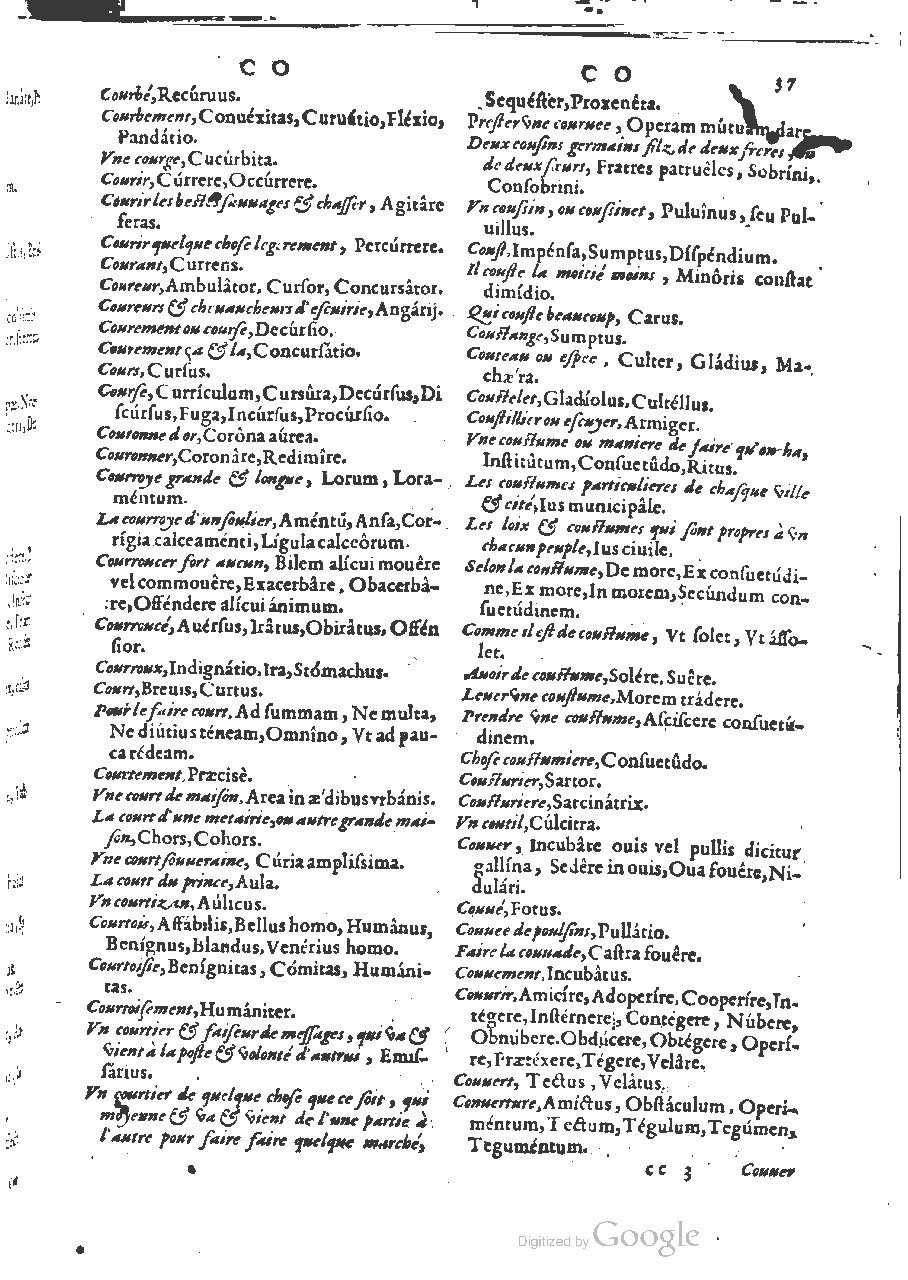 C O
Courbé, Recúruus.
Courbement, Conuéxitas, Curuátio, Fléxio,
Pandátio.
Vne courge, Cucúrbita.
Courir, Cúrrere, Occúrrere.
Courir les bestes sauuages & chasser, Agitâre
feras.
Courir quelque chose legerement, Percúrrere.
Courant, Currens.
Coureur, Ambulâtor, Cursor, Concursâtor.
Coureurs & cheuaucheurs d'escuirie, Angárij.
Courement ou course, Decúrsio.
Courement ça & la, Concursátio.
Cours, Cursus.
Course, Currículum, Cursûra, Decúrsus, Di
scúrsus, Fuga, Incúrsus, Procúrsio.
Couronne d'or, Corôna aúrea.
Couronner, Coronâre, Redimîre.
Courroye grande & longue, Lorum, Lora-
méntum.
La courroye d'un soulier, Améntũ, Ansa, Cor-
rígia calceaménti, Lígula calceôrum.
Courroucer fort aucun, Bilem alícui mouêre
vel commouêre, Exacerbâre, Obacerbâ-
re, Offéndere alícui ánimum.
Courroucé, Auérsus, Irâtus, Obirâtus, Offén
sior.
Courroux, Indignátio, Ira, Stómachus.
Court, Breuis, Curtus.
Pour le faire court, Ad summam, Ne multa,
Ne diútius téneam, Omnîno, Vt ad pau-
ca rédeam.
Courtement, Præcisè.
Vne court de maison, Area in æ'dibus vrbánis.
La court d'une metairie, ou autre grande mai-
son, Chors, Cohors.
Vne court souueraine, Cúria amplissima.
La court du prince, Aula.
Vn courtizan, Aúlicus.
Courtois, Affábilis, Bellus homo, Humânus,
Benígnus, Blandus, Venérius homo.
Courtoisie, Benígnitas, Cómitas, Humáni-
tas.
Courtoisement, Humániter.
Vn courtier & faiseur de messages, qui va &
vient à la poste & volonté d'autruy, Emis-
sárius.
Vn courtier de quelque chose que ce soit, qui
moyenne & va & vient de l'une partie à
l'autre pour faire faire quelque marché,
C O 37
Sequéster, Proxenéta.
Prester vne couruee, Operam mútuam dare
Deux cousins germains filz de deux freres ou
de deux sœurs, Fratres patruêles, Sobríni,
Consobrini.
Vn coussin, ou coussinet, Puluînus, seu Pul-
uillus.
Coust, Impénsa, Sumptus, Dispéndium.
Il couste la moitié moins, Minôris constat
dimídio.
Qui couste beaucoup, Carus.
Coustange, Sumptus.
Couteau ou espee, Culter, Gládius, Ma-
chæ'ra.
Coustelet, Gladíolus, Cultéllus.
Coustillier ou escuyer, Armiger.
Vne coustume ou maniere de faire qu'on ha,
Institûtum, Consuetûdo, Ritus.
Les coustumes particulieres de chasque ville
& cité, Ius municipâle.
Les loix & coustumes qui sont propres à vn
chacun peuple, Ius ciuile.
Selon la coustume, De more, Ex consuetúdi-
ne, Ex more, In morem, Secúndum con-
suetúdinem.
Comme il est de coustume, Vt solet, Vt ásso-
let.
Auoir de coustume, Solére, Suêre.
Leuer vne coustume, Morem trádere.
Prendre vne coustume, Asciscere consuetú-
dinem.
Chose coustumiere, Consuetûdo.
Cousturier, Sartor.
Cousturiere, Sarcinátrix.
Vn coutil, Cúlcitra.
Couuer, Incubâre ouis vel pullis dicitur
gallína, Sedêre in ouis, Oua fouére, Ni-
dulári.
Couué, Fotus.
Couuee de poulsins, Pullátio.
Faire la couuade, Castra fouêre.
Couuement, Incubâtus.
Couurir, Amicíre, Adoperíre, Cooperíre, In-
tégere, Instérnere, Contégere, Núbere,
Obnúbere, Obdúcere, Obtégere, Operí-
re, Prætéxere, Tégere, Velâre.
Couuert, Tectus, Velâtus.
Couuerture, Amíctus, Obstáculum, Operi-
méntum, Tectum, Tégulum, Tegúmen,
Teguméntum.
cc 3 Couuer
Digitized by Google